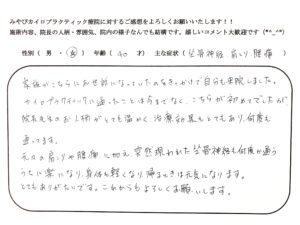 みやびカイロプラクティック療院に対するご感想をよろしくお願いいたします！！
施術内容、院長の人柄・雰囲気、院内の様子なんでも結構です。嬉しいコメント大歓迎です（*^_^*）
性別（ 男 ・ 女 ） 年齢（ 40 才） 主な症状（ 坐骨神経 肩こり、腰痛 ）
家族がこちらにお世話になっていたのをきっかけで自分も来院しました。
カイロプラクティックに通ったことは今までなく、こちらが初めてでしたが
院長先生のお人柄がとても温かく、治療効果もとてもあり、何度も
通ってます。
元々の肩こりや腰痛に加え、突然現われた坐骨神経も何度か通う
うちに楽になり、身体も軽くなり、帰るときは元気になります。
とてもありがたいです。これからもよろしくお願いします。